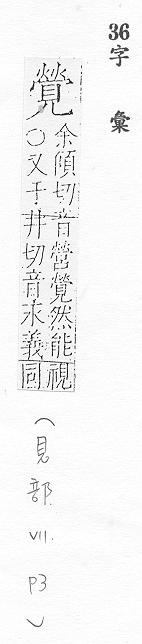 36字彙
覮
余傾切音營覮然能視
○又于井切音永義同
(見部 VII. P3)